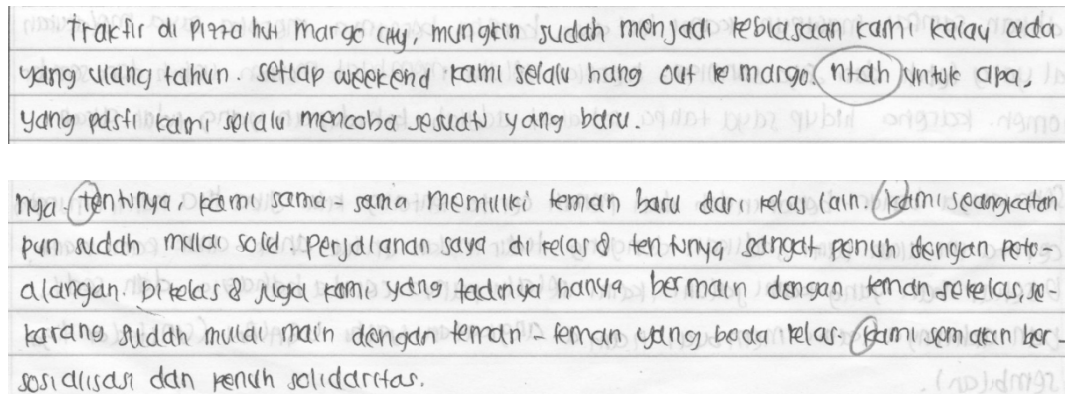 Traktir di Pizza hut margo city, mungkin sudah menjadi kebiasaan kami kalau ada
yang ulang tahun. setiap weekend kami selalu hang out ke margo. ntah untuk apa,
yang pasti kami selalu mencoba sesuatu yang baru.
nya. tentinya, kami sama-sama memiliki teman baru dari kelas lain. kami seangkatan
pun sudah mulai solid. Perjalanan saya di kelas 8 tentunya sangat penuh dengan petu-
alangan. Di kelas 8 juga kami yang tadinya hanya bermain dengan teman sekelas, se-
karang sudah mulai main dengan teman-teman yang beda kelas. kami semakin ber-
sosialisasi dan penuh solidaritas.